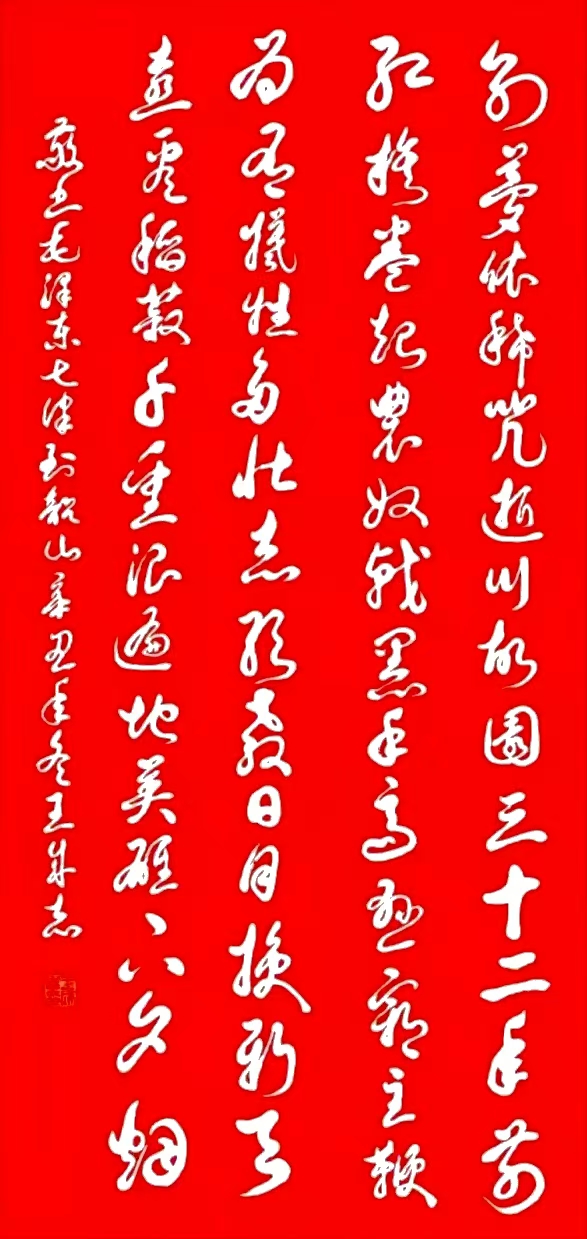 别梦依稀咒逝川故園三十二年前
红旗卷起農奴戟黑手高悬霸主鞭
为有犠牲多壮志敢教日月换新天
喜看稻菽千重浪遍地英雄下夕烟
敬书毛泽东七律到韶山辛丑年冬王志